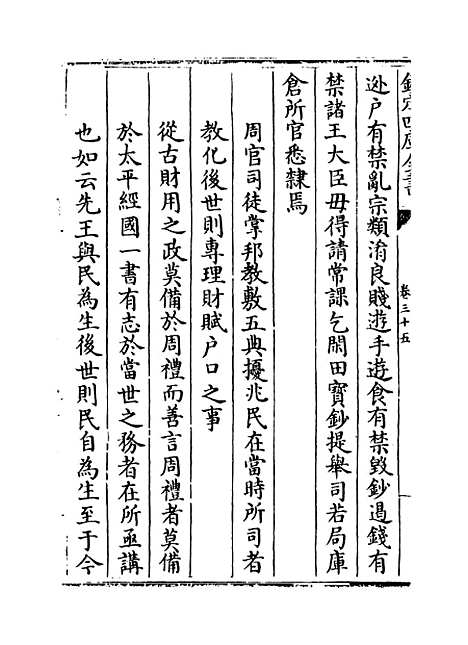 欽定四庫全書
卷三十五
逃户有禁亂宗類淆良賤遊手遊食有禁毀鈔過錢有
禁諸王大臣毋得請常課乞閒田寶鈔提舉司若局庫
倉所官悉隸焉
周官司徒掌邦教敷五典擾兆民在當時所司者
教化後世則專理財賦户口之事
從古財用之政莫備於周禮而善言周禮者莫備
於太平經國一書有志於當世之務者在所亟講
也如云先王與民為生後世則民自為生至于今